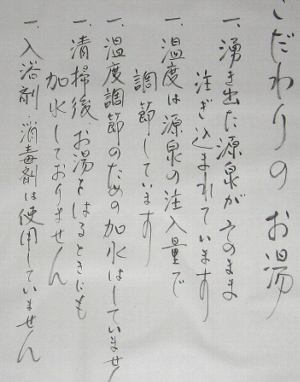 こだわりのお湯
一、湧き出た源泉がそのまま
注ぎ込まれています
一、温度は源泉の注入量で
調節しています
一、温度調節のための加水はしていません
一、清掃後、お湯をはるときにも
加水しておりません
一、入浴剤・消毒剤は使用していません